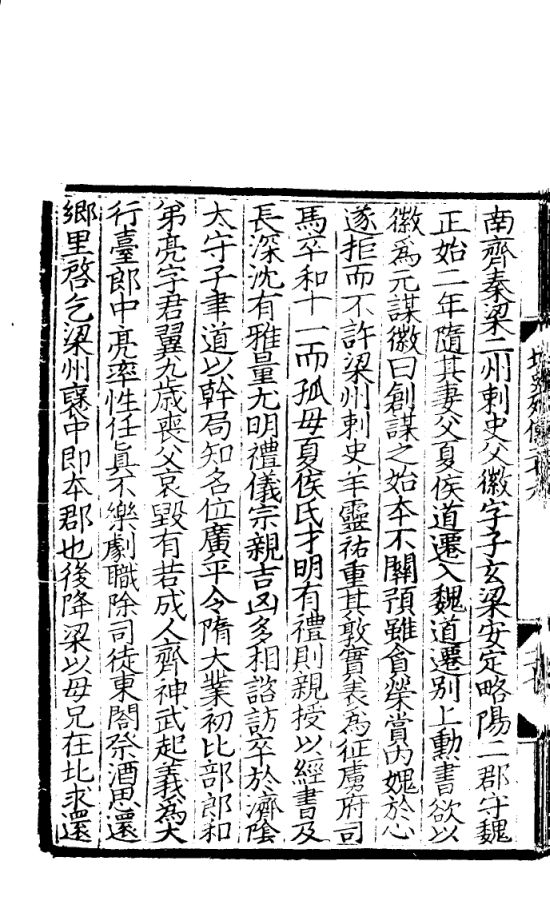 南齊秦梁二州刺史父徽字子玄梁安定略陽二郡守魏
正始二年隨其妻父夏侯道遷入魏道遷別上勲書欲以
徽爲元謀徽曰創謀之始本不關預雖貪榮賞内媿於心
遂拒而不許梁州刺史羊靈祐重其敦實表爲征虜府司
馬卒和十一而孤母夏侯氏才明有禮則親授以經書及
長深沈有雅量尤明禮儀宗親吉凶多相諮訪卒於濟陰
太守子聿道以幹局知名位廣平令隋大業初比部郎和
弟亮字君翼九歳喪父哀毀有若成人齊神武起義爲大
行臺郎中亮率性任眞不樂劇職除司徒東閤祭酒思還
鄉里啓乞梁州襃中即本郡也後降梁以母兄在北求還